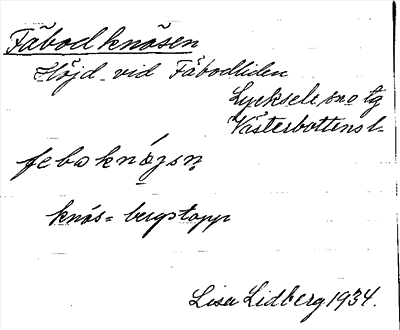 Fäbodknösen
Höjd vid Fäbodliden
Lycksele sn o tg
Västerbottens l.
feboknǿsn̥
knös = bergstopp
Lisa Lidberg 1934.